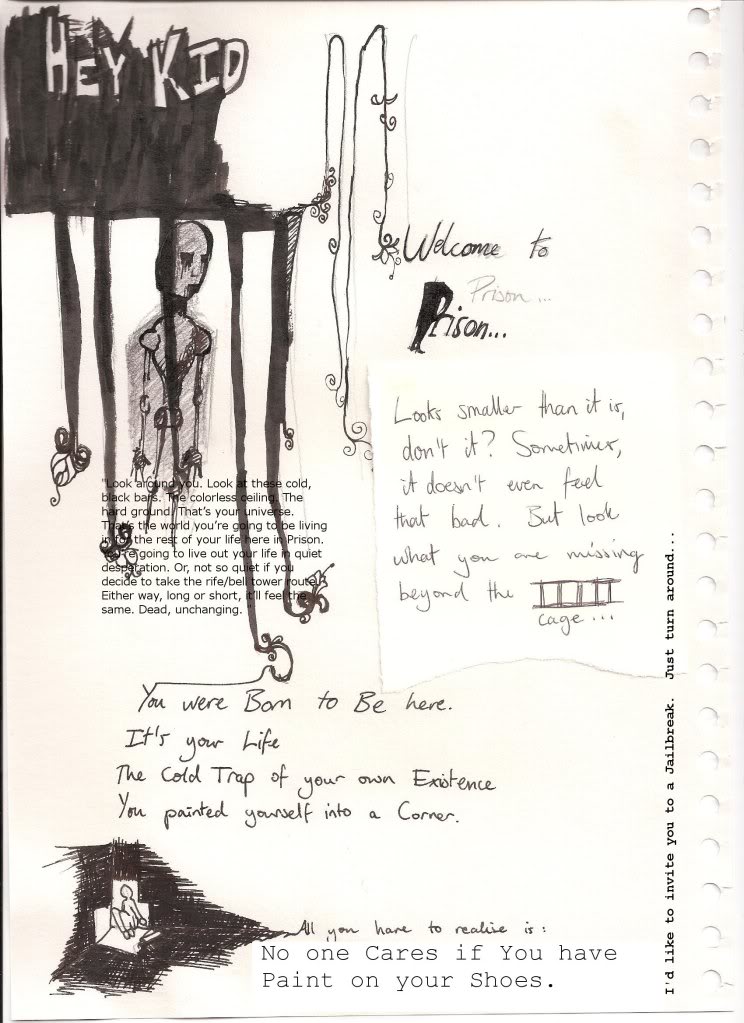 HEY KID
Welcome to
Prison...
Prison...
Looks smaller than it is,
don't it? Sometimes,
it doesn't even feel
that bad. But look
what you are missing
beyond the
cage...
"Look around you. Look at these cold,
black bars. The colorless ceiling. The
hard ground. That's your universe.
That's the world you're going to be living
in for the rest of your life here in Prison.
You're going to live out your life in quiet
desperation. Or, not so quiet if you
decide to take the rife/bell tower route.
Either way, long or short, it'll feel the
same. Dead, unchanging.
You were Born to Be here.
It's your Life
The Cold Trap of your own Existence
You painted yourself into a Corner.
All you have to realise is:
No one Cares if You have
Paint on your Shoes.
I'd like to invite you to a Jailbreak. Just turn around...